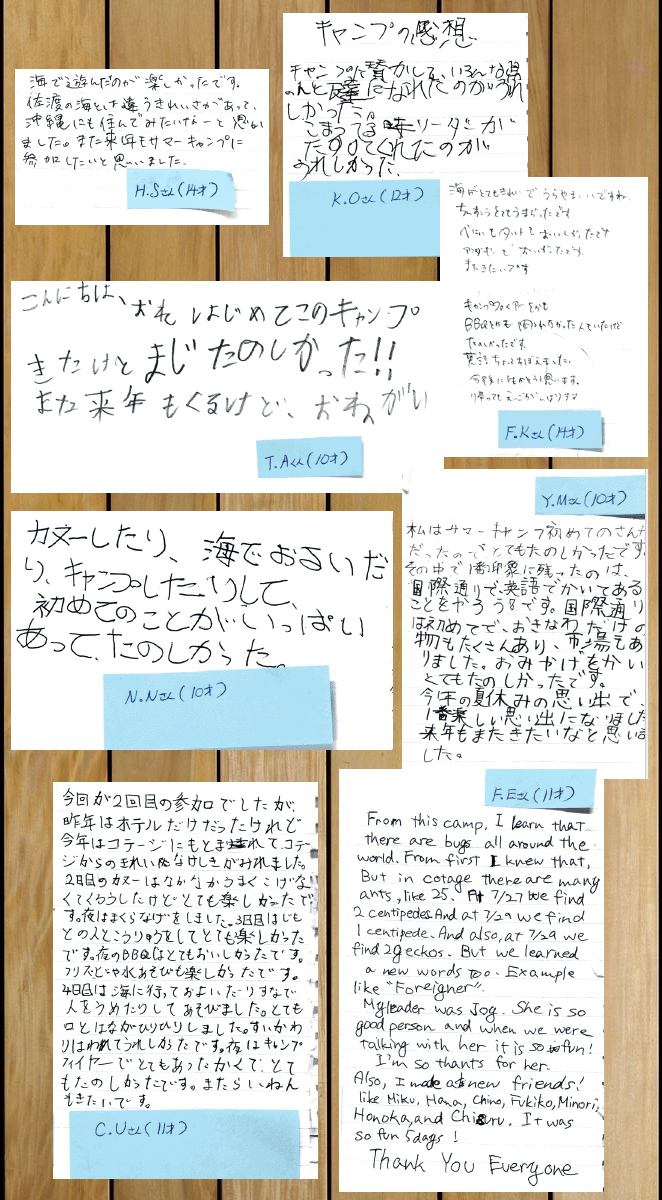 海で遊んだのが楽しかったです。
佐渡の海とは違うきれいさがあって、
沖縄にも住んでみたいなーと思い
ました。また来年もサマーキャンプに
参加したいと思いました。
H.Sさん(14才)
キャンプの感想
キャンプに参加して、いろんな県
の人と友達になれたのがうれ
しかった。
こまってる時リーダーが
たすけてくれたのが
うれしかった。
K.Oさん(12才)
海がとてもきれいでうらやましいですね。
べにいもタルトもおいしかったです
またきたいです
キャンプファイアーとかも
BBQとかも
たのしかったです。
英語ちょっとおぼえました。
F.Kさん(14才)
こんにちは、おれはじめてこのキャンプ
きたけどまじたのしかった!!
また来年もくるけど、おねがい
T.Aくん(10才)
カヌーしたり、海でおよいだ
り、キャンプしたりして、
初めてのことがいっぱい
あって、たのしかった。
N.Nさん(10才)
Y.Mさん(10才)
私はサマーキャンプ初めてのさんか
だったのでとてもたのしかったです。
その中で1番印象に残ったのは、
国際通りで、英語でかいてある
ことをやろう8です。国際通り
は初めてで、おきなわだけの
物もたくさんあり、市場もあ
りました。おみやげをかい
とてもたのしかったです。
今年の夏休みの思い出で、
1番楽しい思い出になりました
来年もまたきたいなと思いま
した。
F.Eさん(11才)
今回が2回目の参加でしたが、
昨年はホテルだけだったけれど
今年はコテージにもとまれて、コテー
ジからのきれいなけしきがみれました。
2日目のカヌーはなかなかうまくこげな
くてくもうしたけどとても楽しかったで
す。夜はまくらなげをしました。3日目はじも
との人とこうりゅうをしてとても楽しかった
です。夜のBBQはとてもおいしかったです。
フリスビーや水あそびも楽しかったです。
4日目は海に行っておよいだりすなで
人をうめたりしてあそびました。とても
口とはながひりひりしました。すいかわ
りはわれてうれしかったです。夜はキャンプ
ファイヤーでとてもあったかくて、とて
もたのしかったです。またらいねん
もきたいです。
C.Uさん(11才)
From this camp, I learn that
there are bugs all around the
world. From first I knew that,
But in cotage there are many
ants, like 25. At 7/27 we find
2 centipedes. And at 7/29 we find
1 centipede. And also, at 7/29 we
find 2 geckos. But we learned
a new words too. Example
like "Foreigner".
My leader was Jog. She is so
good person and when we were
talking with her it is so fun!
I'm so thants for her.
Also, I made a new friends!
like Miku, Hana, Chino, Fukiko, Minori,
Honoka, and Chisuru. It was
so fun 5days!
Thank You Everyone